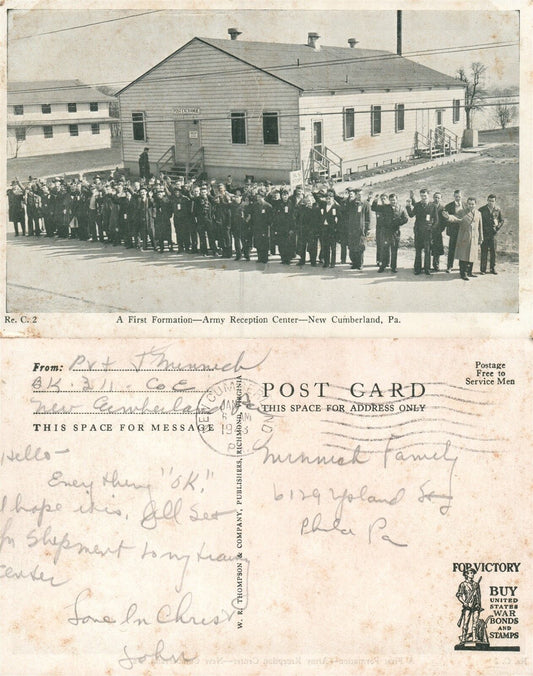 POST EXCHANGE
Re. C. 2 A First Formation—Army Reception Center—New Cumberland, Pa.
From: Pvt J Minnich
BK. 311. Co C
New Cumberland Pa
THIS SPACE FOR MESSAGE
Hello—
Everything "OK,"
I hope it is, All Set
for Shepment to my train
Center
Love In Christ
John
W. R. THOMPSON & COMPANY, PUBLISHERS, RICHMOND, VIRGINIA
NEW CUMBERLAND
JAN
6 AM
1943
PA
POST CARD
THIS SPACE FOR ADDRESS ONLY
Postage
Free to
Service Men
Minnich Family
6129 Upland
Phila Pa
FOR VICTORY
BUY
UNITED
STATES
WAR
BONDS
AND
STAMPS